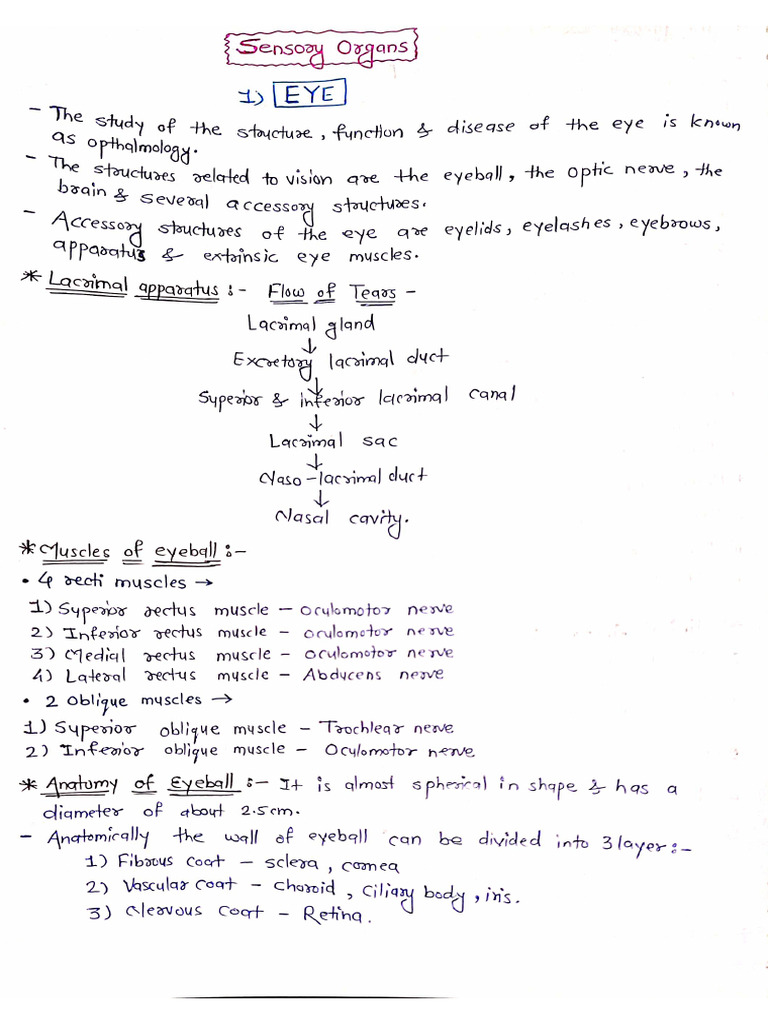 Sensory Organs
1) EYE
- The study of the structure, function & disease of the eye is known
as opthalmology.
- The structures related to vision are the eyeball, the optic nerve, the
brain & several accessory structures.
- Accessory structures of the eye are eyelids, eyelashes, eyebrows,
apparatus & extrinsic eye muscles.
* Lacrimal apparatus :- Flow of Tears -
Lacrimal gland
↓
Excretory lacrimal duct
↓
Superior & inferior lacrimal canal
↓
Lacrimal sac
↓
Naso-lacrimal duct
↓
Nasal cavity.
* Muscles of eyeball :-
• 4 recti muscles →
1) Superior rectus muscle - oculomotor nerve
2) Inferior rectus muscle - oculomotor nerve
3) Medial rectus muscle - oculomotor nerve
4) Lateral rectus muscle - Abducens nerve
• 2 oblique muscles →
1) Superior oblique muscle - Trochlear nerve
2) Inferior oblique muscle - Oculomotor nerve
* Anatomy of Eyeball :- It is almost spherical in shape & has a
diameter of about 2.5cm.
- Anatomically the wall of eyeball can be divided into 3 layer :-
1) Fibrous coat - sclera, cornea
2) Vascular coat - Choroid, Ciliary body, iris.
3) Nervous coat - Retina.